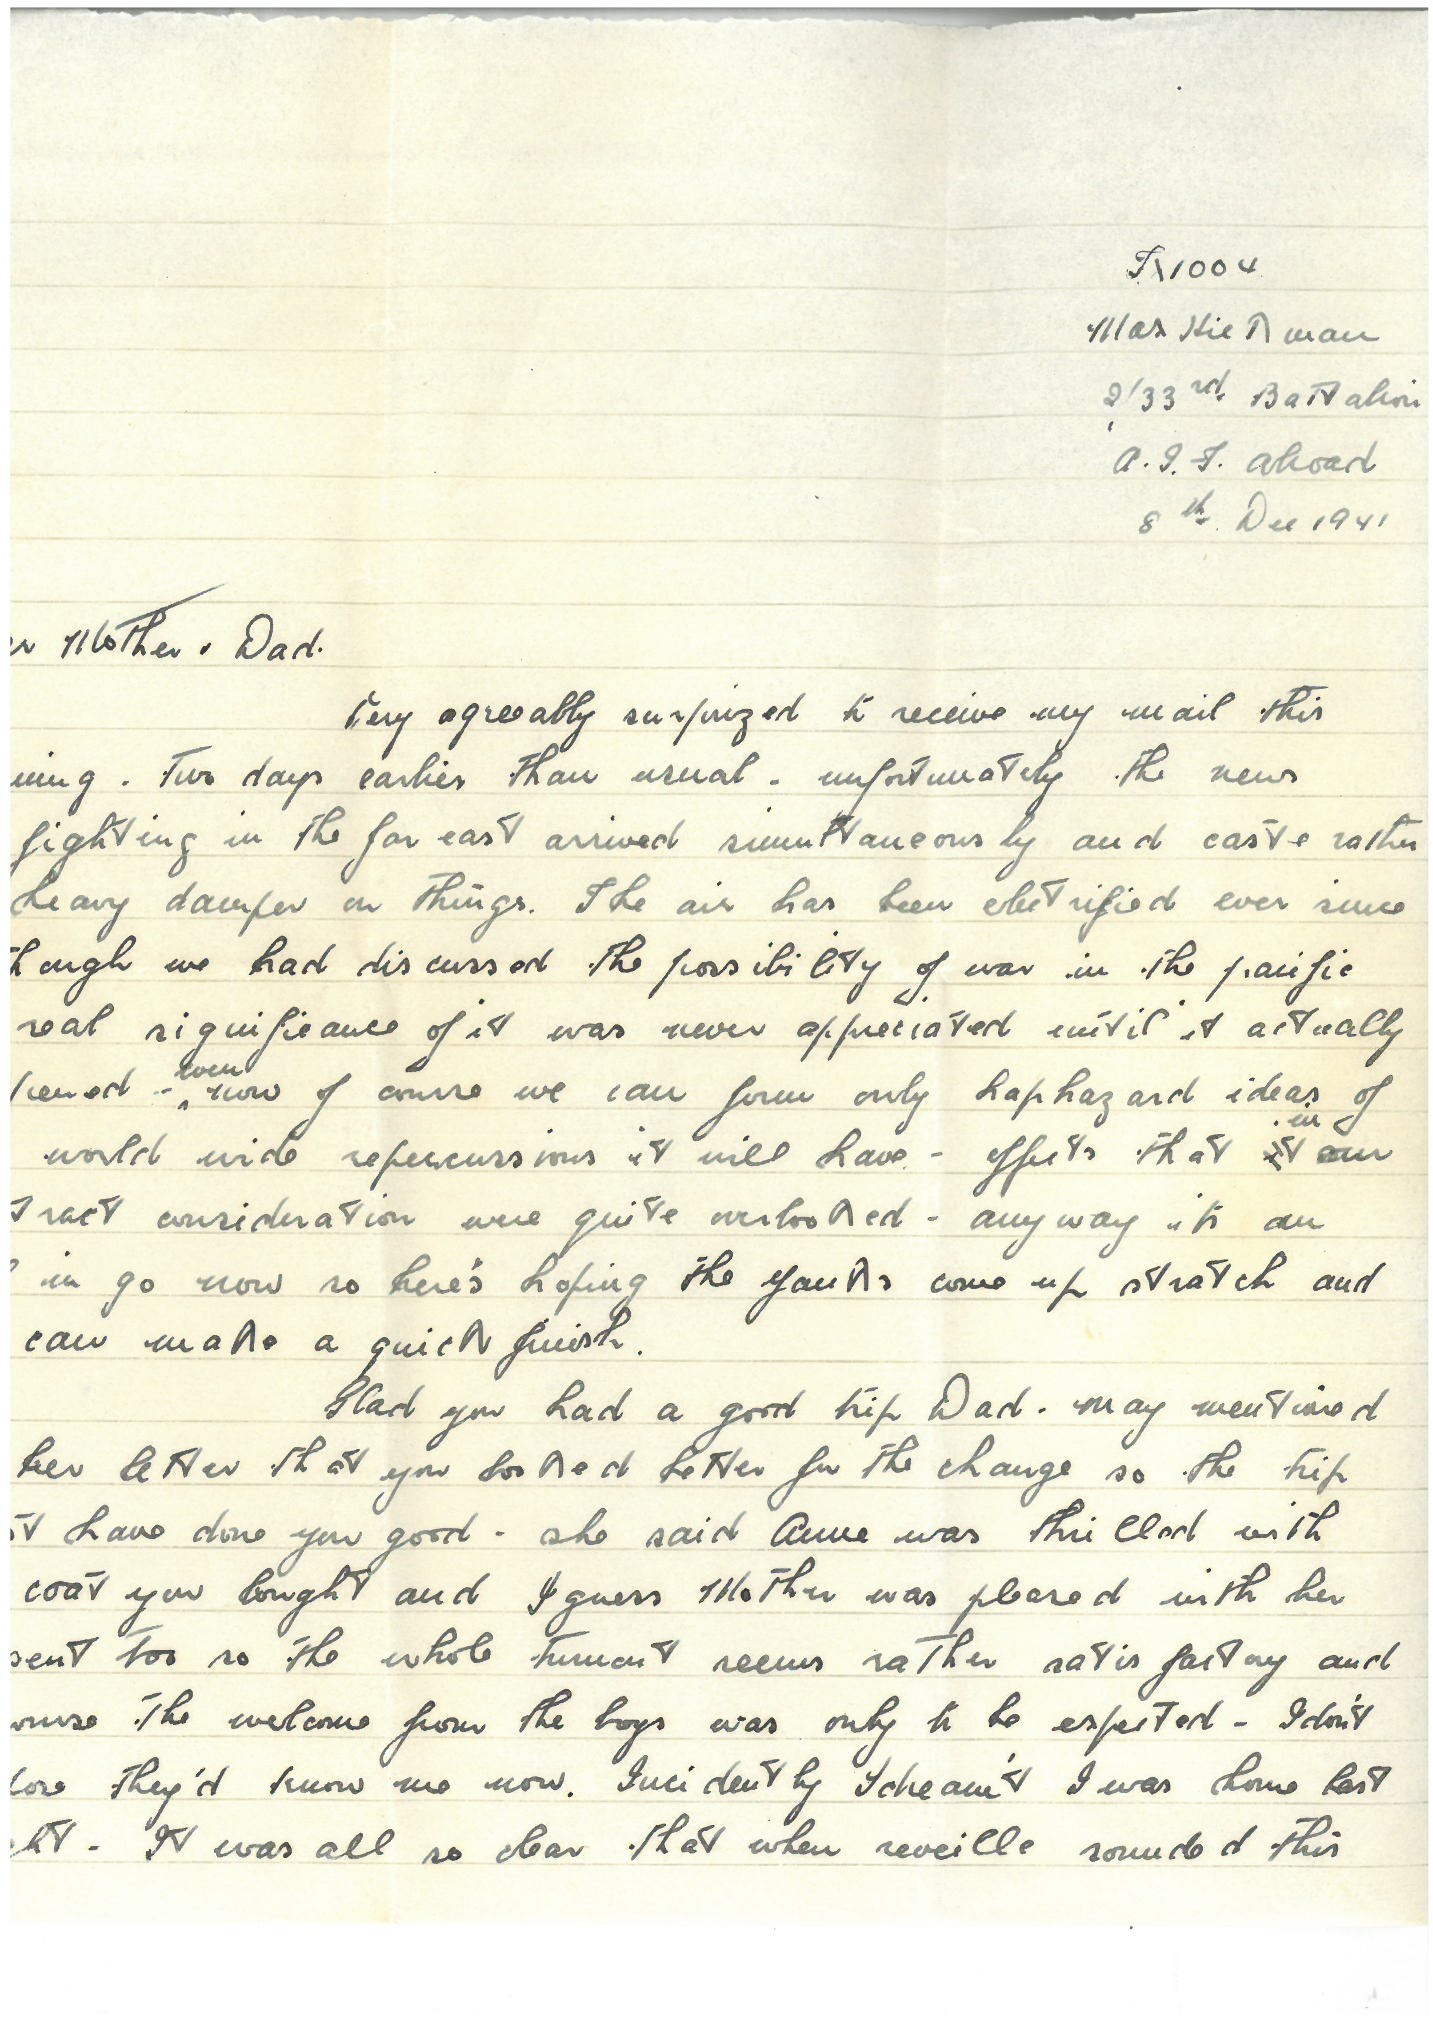 TX1004
Max Hickman
2/33rd Battalion
A.I.F. abroad
8th Dec 1941
er Mother & Dad.
Very agreeably surprized to receive my mail this
ning. Two days earlier than usual - unfortunately the news
fighting in the far east arrived simultaneously and caste rather
heavy damper on things. The air has been electrified ever since
though we had discussed the possibility of war in the pacific
real significance of it was never appreciated until it actually
pened - even now of course we can form only haphazard ideas of
world wide repercussions it will have - effects that in our
tract consideration were quite overlooked - anyway its an
in go now so here's hoping the Yanks come up stratch and
can make a quick finish.
Glad you had a good trip Dad. May mentioned
her letter that you looked better for the change so the trip
st have done you good - she said Anne was thrilled with
coat you bought and I guess Mother was pleased with her
sent too so the whole turnout seems rather satisfactory and
ourse the welcome from the boys was only to be expected - I don't
pose they'd know me now. Incidently I dreamt I was home last
ght - It was all so clear that when reveille sounded this